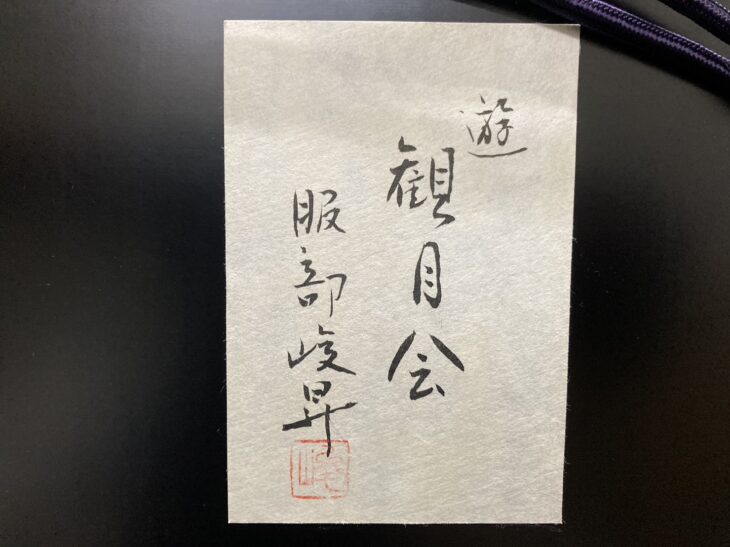 遊
観月会
服部峻昇